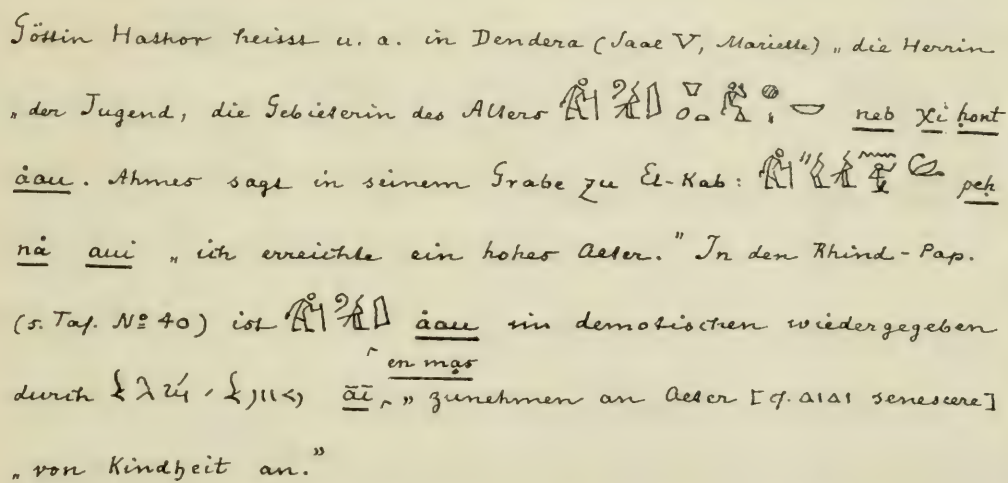 Göttin Hathor heisst u. a. in Dendera (Saal V, Mariette) „die Herrin
„der Jugend, die Gebieterin des Alters neb χi ḥont
åau. Ahmes sagt in seinem Grabe zu El-Kab: peḥ
nå aui „ich erreichte ein hohes Alter." In den Rhind-Pap.
(s. Taf. № 40) ist åau im demotischen wiedergegeben
durch āī ⌜en mas⌝ „zunehmen an Alter [cf. ⲁⲓⲁⲓ senescere]
„von Kindheit an."